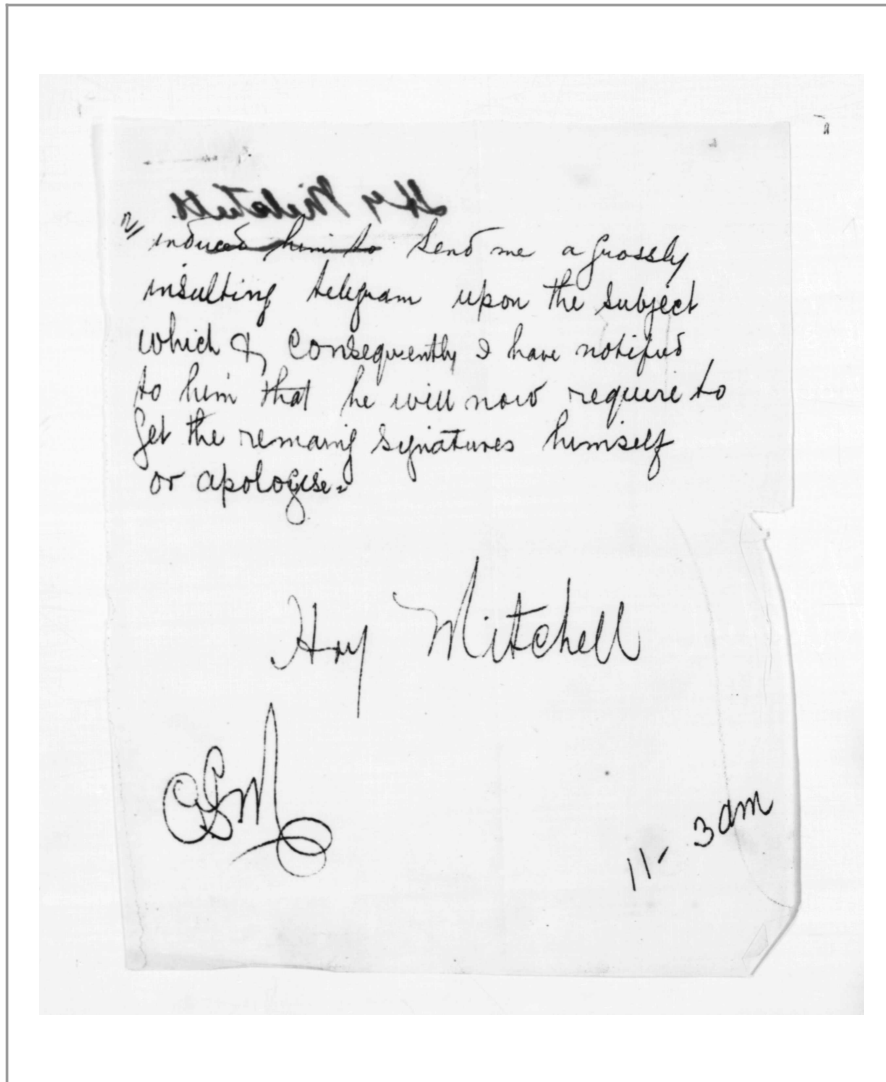 2/
induced him to send me a grossly
insulting telegram upon the subject
which & consequently I have notified
to him that he will now require to
get the remaing signatures himself
or apologise.
Hry Mitchell
11- 3 am